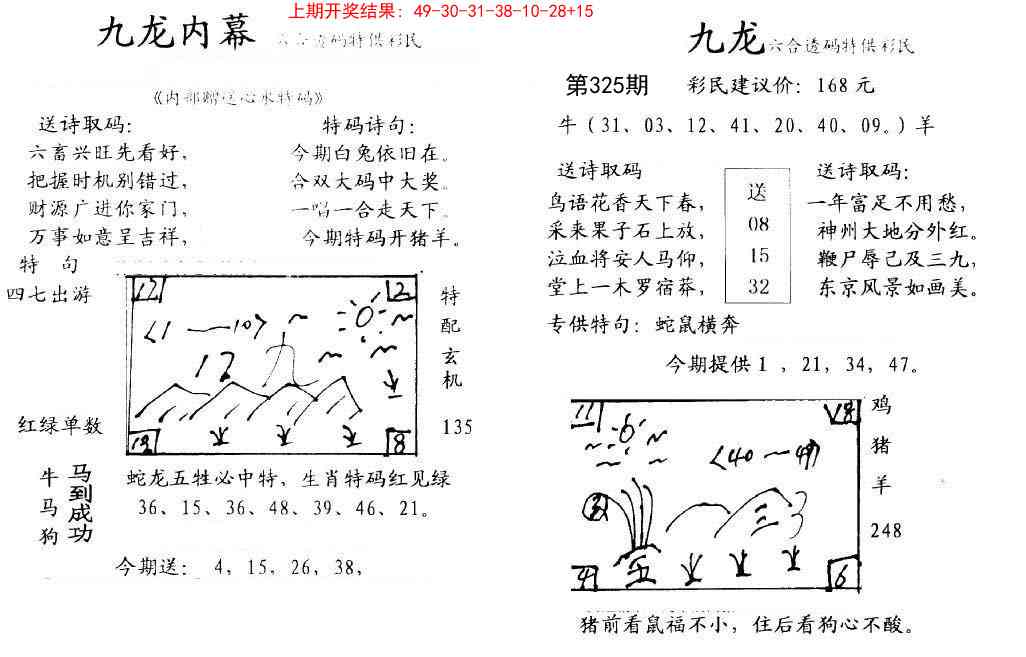 上期开奖结果: 49-30-31-38-10-28+15
九龙内幕
六合透码特供彩民
《内部赠送心水特码》
送诗取码:
六畜兴旺先看好,
把握时机别错过,
财源广进你家门,
万事如意呈吉祥,
特码诗句:
今期白兔依旧在。
合双大码中大奖。
一唱一合走天下。
今期特码开猪羊。
特 句
四七出游
红绿单数
17
2
<1——10>
12
九
8
特
配
玄
机
135
牛
马
狗
马到成功
蛇龙五牲必中特, 生肖特码红见绿
36、15、36、48、39、46、21。
今期送: 4, 15, 26, 38,
九龙六合透码特供彩民
第325期 彩民建议价: 168 元
牛 ( 31、03、12、41、20、40、09。) 羊
送诗取码
鸟语花香天下春,
采来果子石上放,
泣血将安人马仰,
堂上一木罗宿莽,
送
08
15
32
送诗取码:
一年富足不用愁,
神州大地分外红。
鞭尸辱己及三九,
东京风景如画美。
专供特句: 蛇鼠横奔
今期提供 1 , 21, 34, 47。
11
18
<40—49>
三
4
6
鸡
猪
羊
248
猪前看鼠福不小, 住后看狗心不酸。